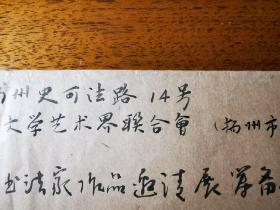 州史可法路14号
大学艺术界联合會（扬州市
书法家作品邀请展筹备